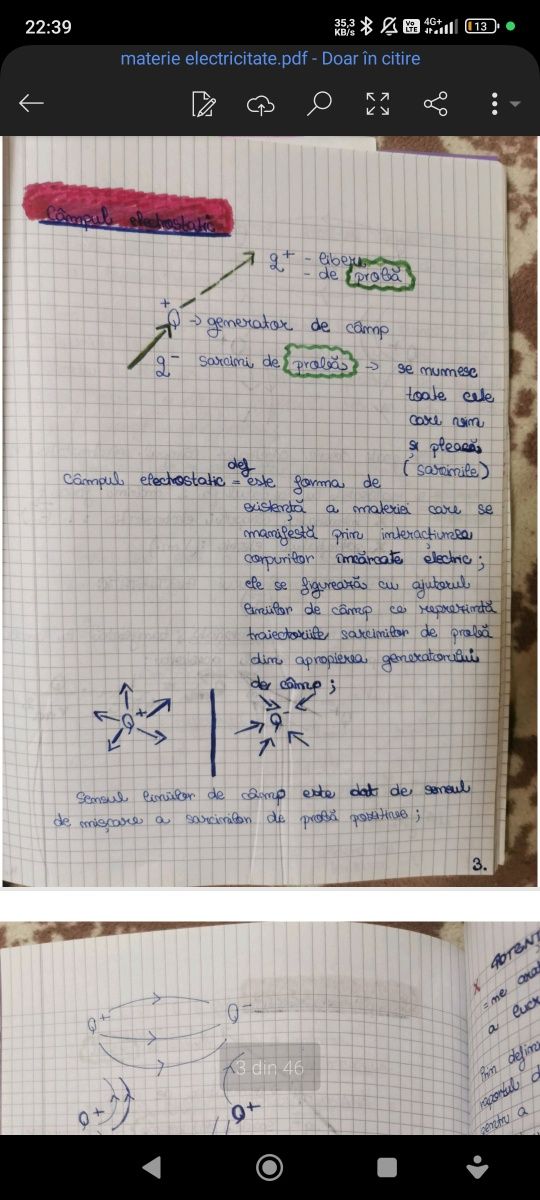 22:39
35,3 KB/s
Vo LTE
4G+
13
materie electricitate.pdf - Doar în citire
Câmpul electrostatic
q+ - liberi
- de probă
+
Q → generator de câmp
q- sarcini de probă → se numesc
toate cele
care vin
și pleacă
(sarcinile)
def
Câmpul electrostatic = este forma de
existență a materiei care se
manifestă prin interacțiunea
corpurilor încărcate electric;
ele se figurează cu ajutorul
liniilor de câmp ce reprezintă
traiectoriile sarcinilor de probă
din apropierea generatorului
de câmp;
Q+
Q-
Sensul liniilor de câmp este dat de sensul
de mișcare a sarcinilor de probă pozitive;
3.
Q+
Q-
3 din 46
Q+
Q+
POTENȚ
= ne
a lucr
Prin defin
raportul d
pentru a